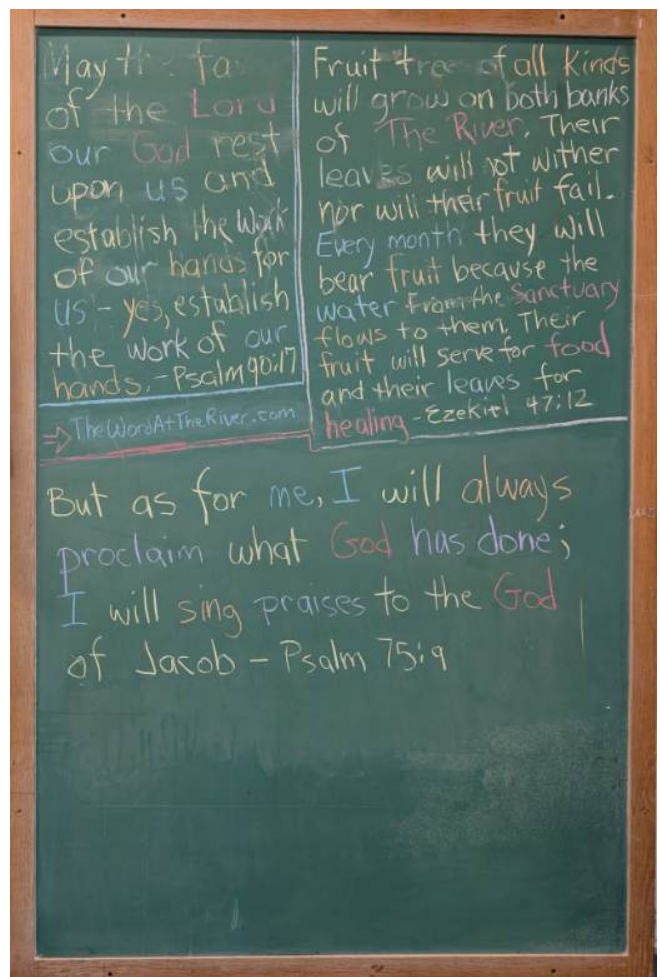 May the fa
of the Lord
our God rest
upon us and
establish the work
of our hands for
us - yes, establish
the work of our
hands. - Psalm 90:17
TheWordAtTheRiver.com
Fruit tree of all kinds
will grow on both banks
of The River. Their
leaves will not wither
nor will their fruit fail.
Every month they will
bear fruit because the
water from the Sanctuary
flows to them. Their
fruit will serve for food
and their leaves for
healing - Ezekiel 47:12
But as for me, I will always
proclaim what God has done;
I will sing praises to the God
of Jacob - Psalm 75:9